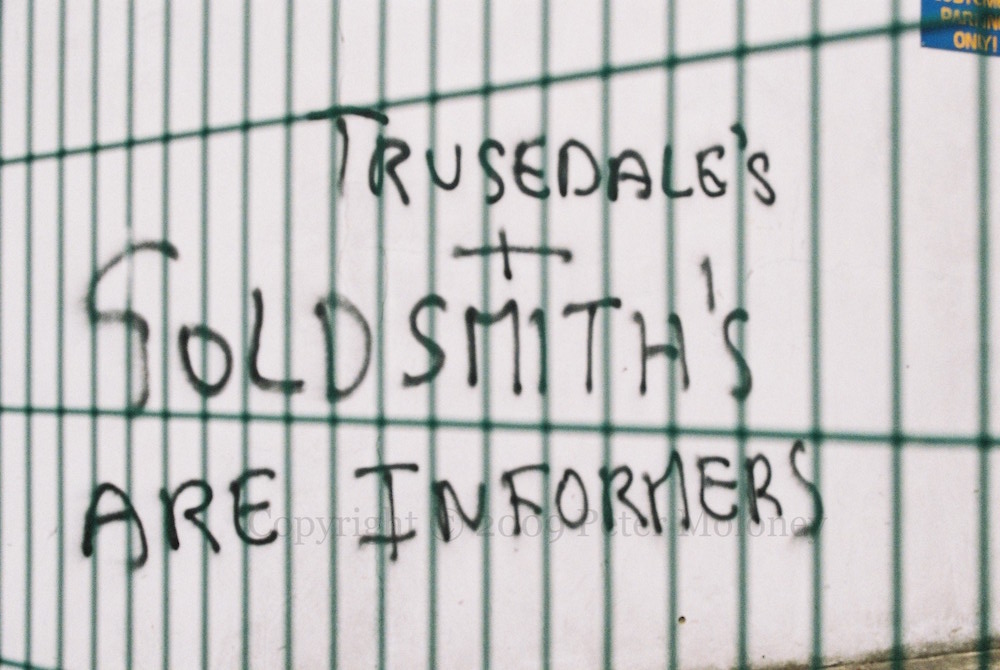 PARKING
ONLY!
TRUSEDALE'S
+
GOLDSMITH'S
ARE INFORMERS
Copyright © 2009 Peter Moloney